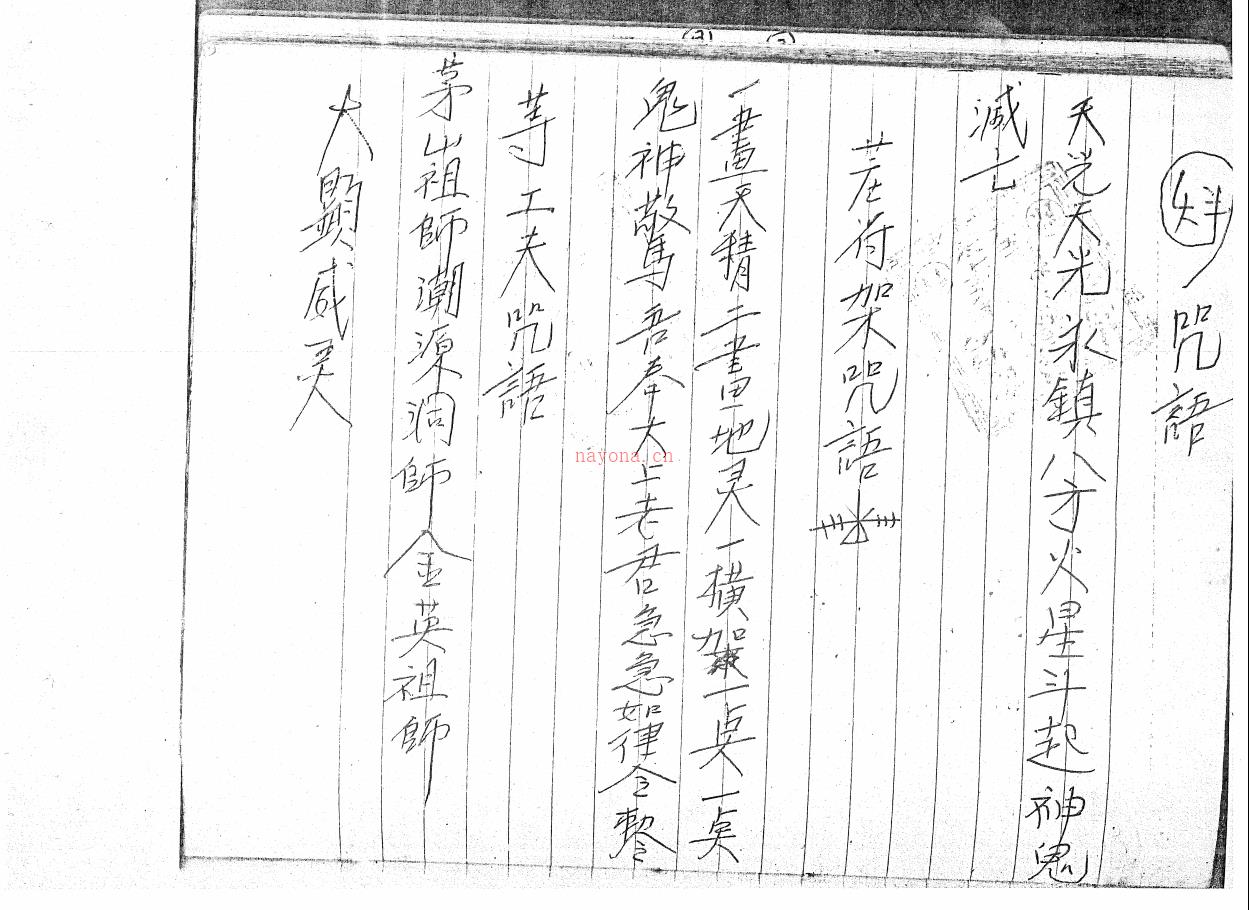 咒語
天光天光永鎮八方火星斗起神鬼
滅亡
符架咒語
一畫天精二畫地灵一橫架一点一点
鬼神驚吾奉大上老君急急如律令
等工夫咒語
茅山祖師潮源洞師金英祖師
大顯威灵
nayona.cn